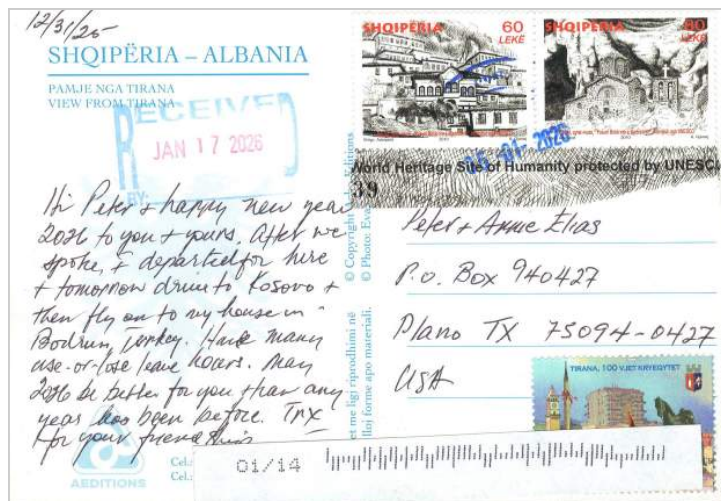 12/31/25
SHQIPËRIA – ALBANIA
PAMJE NGA TIRANA
VIEW FROM TIRANA
RECEIVED
JAN 17 2026
BY:
Hi Peter & happy new year
2026 to you & yours. After we
spoke, I departed for here
& tomorrow drive to Kosovo &
then fly on to my house in
Bodrum, Turkey. Have many
use-or-lose leave hours. May
2026 be better for you than any
year has been before. Tnx
for your friendship
AEDITIONS
Cel.:
Cel.:
© Copyright Editions
© Photo: Eva
et me ligj riprodhimi në
lloj forme apo materiali.
SHQIPËRIA 60 LEKË
SHQIPËRIA 80 LEKË
01 2026
World Heritage Site of Humanity protected by UNESCO
39
Peter & Annie Elias
P.O. Box 940427
Plano TX 75094-0427
USA
TIRANA, 100 VJET KRYEQYTET
01/14